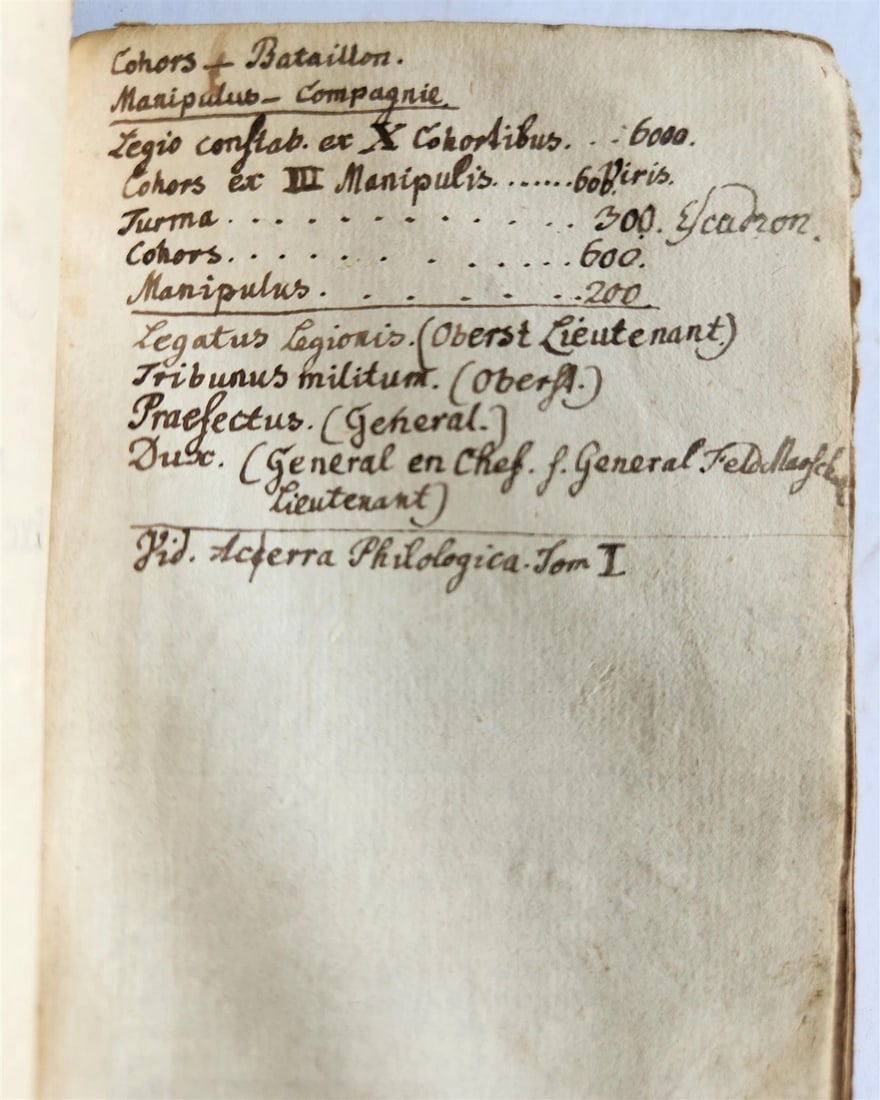 Cohors – Bataillon.
Manipulus – Compagnie.
Legio constab. ex X Cohortibus. . . 6000.
Cohors ex III Manipulis. . . . . . . 600 Viris.
Turma . . . . . . . . . . . 300. Escadron.
Cohors. . . . . . . . . . . . . 600.
Manipulus . . . . . . . 200.
Legatus Legionis. (Oberst Lieutenant)
Tribunus militum. (Oberst.)
Praefectus. (General.)
Dux. (General en Chef. s. General FeldMarsch
Lieutenant)
Vid. Acerra Philologica. Tom I